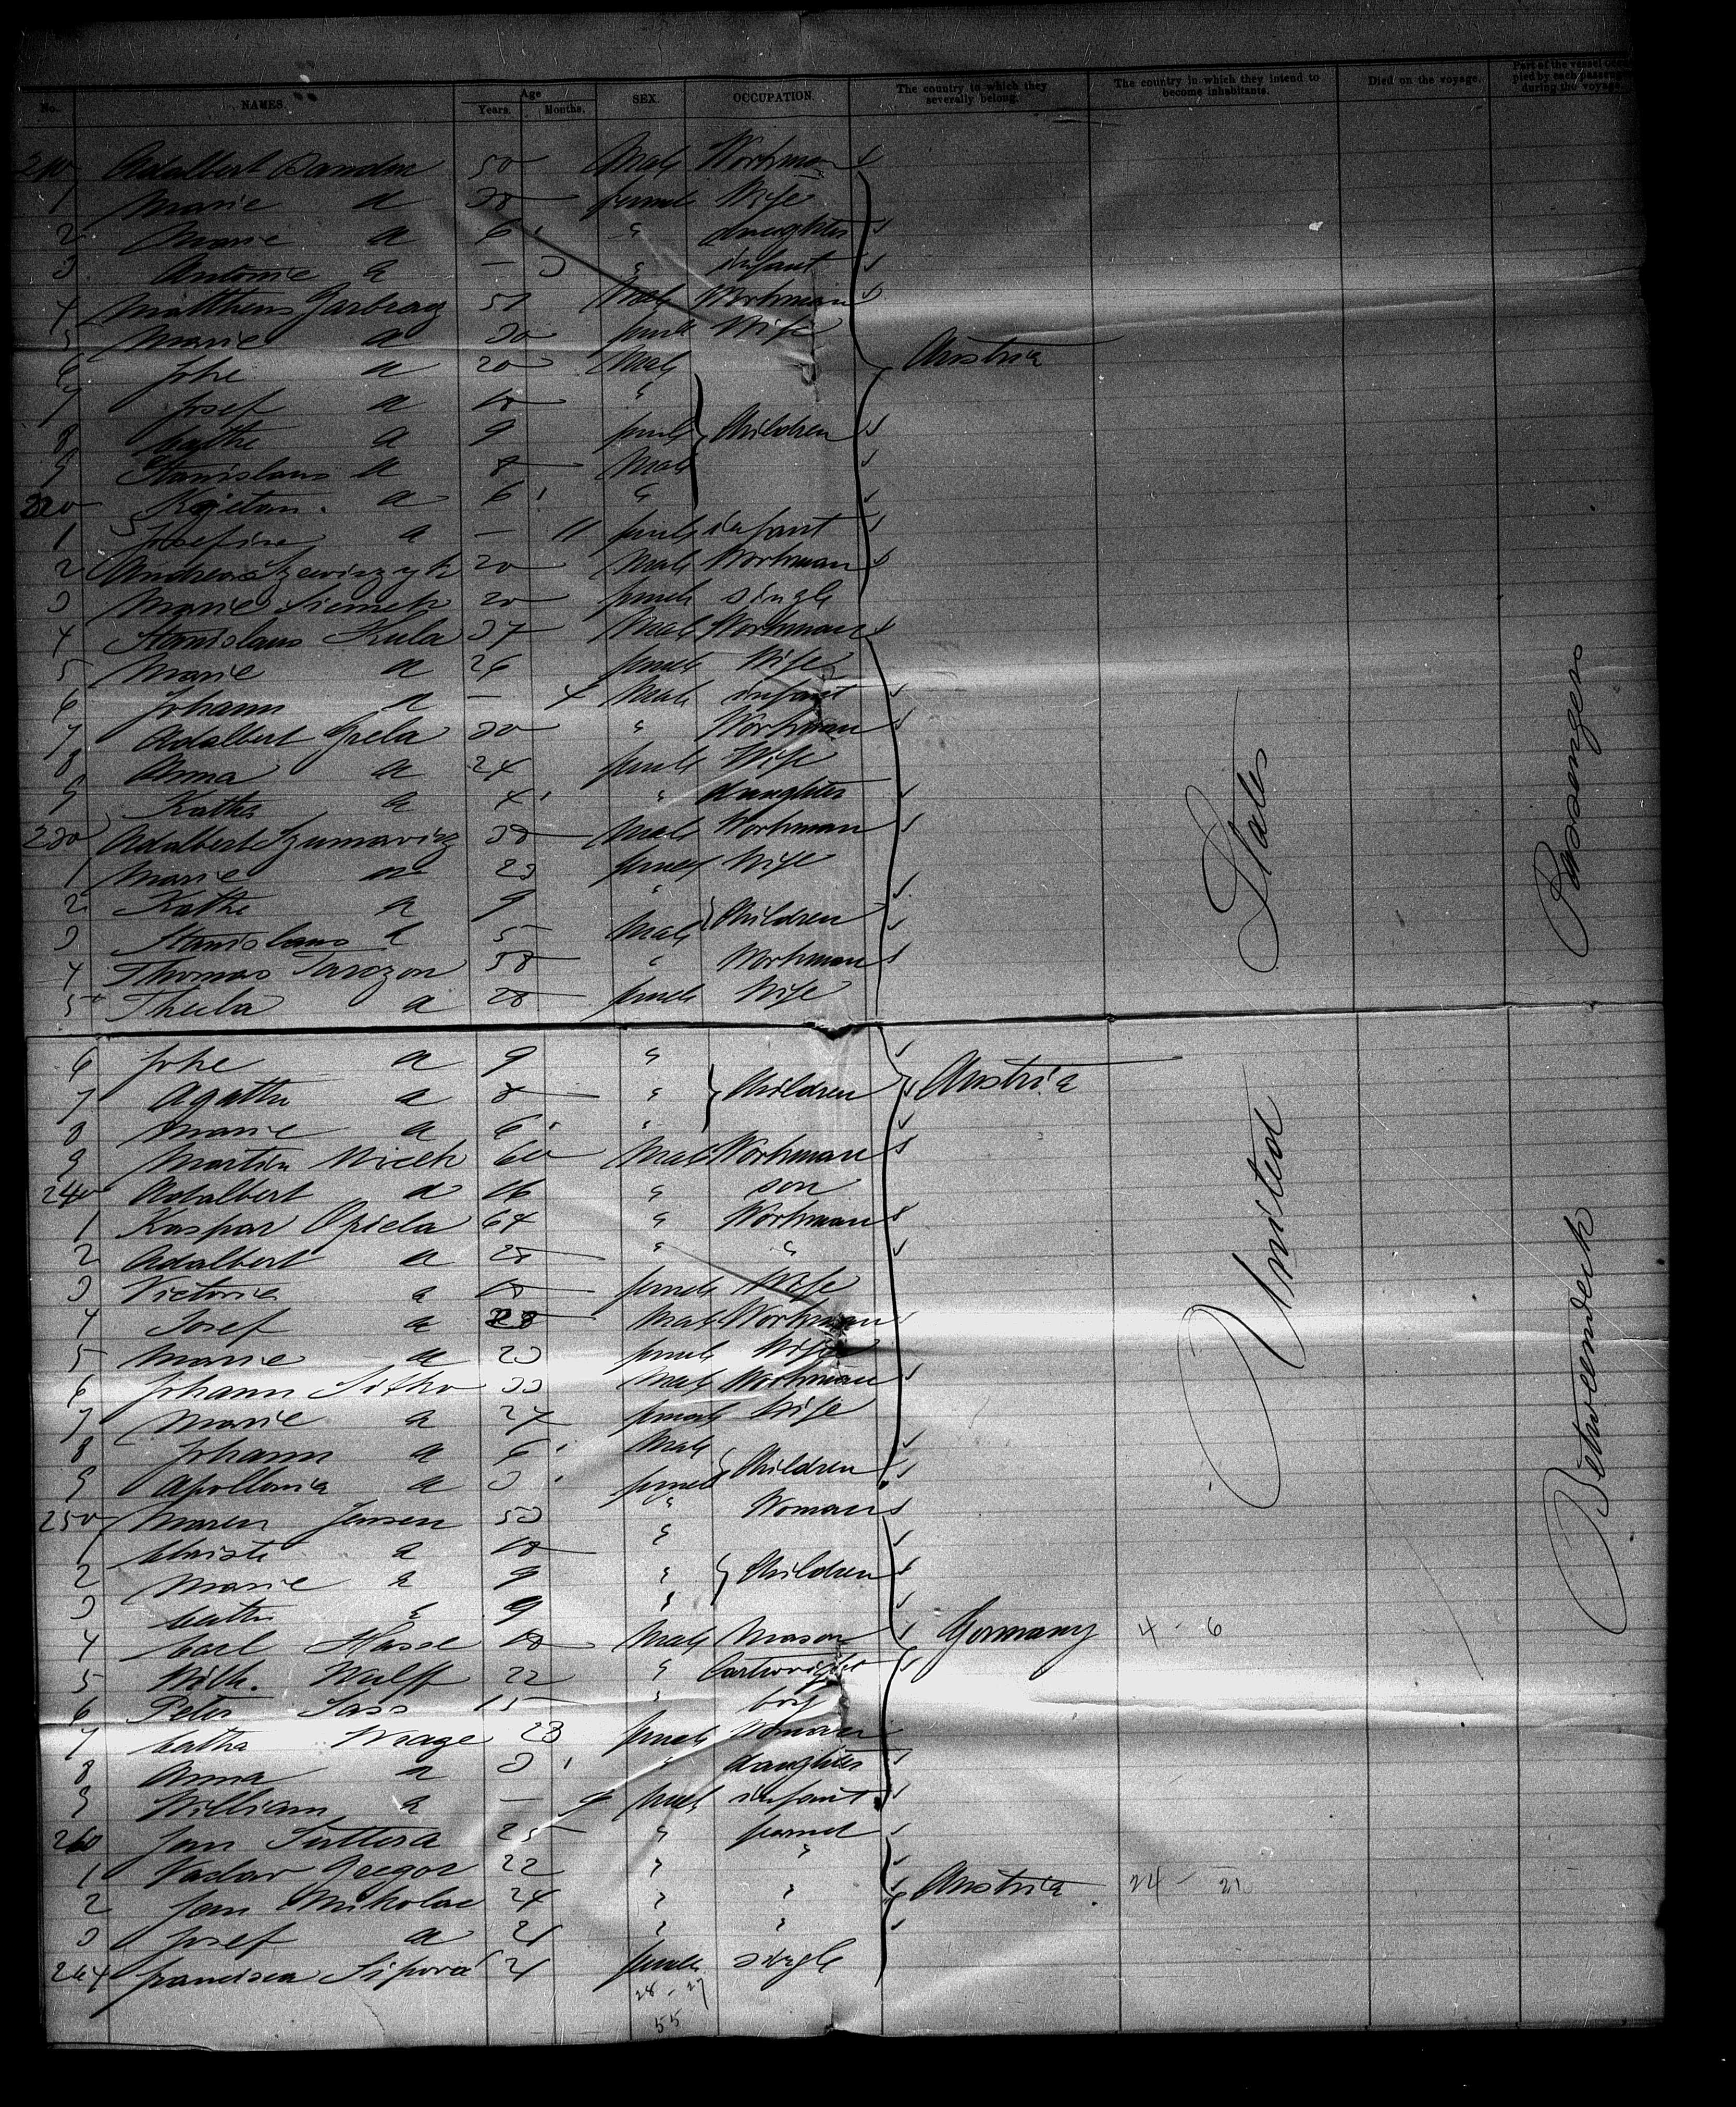 No. NAMES. Age Years. Months. SEX. OCCUPATION. The country to which they severally belong. The country in which they intend to become inhabitants. Died on the voyage. Part of the vessel occupied by each passenger during the voyage.
210 Adalbert 50 Male Workman
1 Marie a 38 female Wife
2 Marie a 6 " daughter
3 Antonie a — 3 " infant
4 Mattheus 51 Male Workman
5 Marie a 30 female Wife
6 Johe a 20 Male Austria
7 Josef a 18 "
8 Cathe a 9 female Children
9 Stanislaus a 8 Male
220 Kajetan a 6 "
1 Josefine a — 11 female infant
2 Andreas 20 Male Workman
3 Marie Siemek 20 female single
4 Stanislaus Kula 37 Male Workman
5 Marie a 26 female Wife
6 Johann a — 4 Male infant
7 Adalbert Grela 30 " Workman
8 Anna a 24 female Wife
9 Kathe a 4 " daughter
230 Adalbert 38 Male Workman
1 Marie a 23 female Wife
2 Kathe a 9 "
3 Stanislaus a 5 Male Children
4 Thomas Tarczon 58 " Workman
5 Thecla a 28 female Wife
6 Johe a 9 "
7 Agathe a 8 " Children Austria
8 Marie a 6 "
9 Martin 60 Male Workman
240 Adalbert a 16 " son
1 Kaspar Opiela 64 " Workman
2 Adalbert a 28 " "
3 Victoria a 18 female Wife
4 Josef a 28 Male Workman
5 Marie a 23 female Wife
6 Johann Sitko 33 Male Workman
7 Marie a 27 female Wife
8 Johann a 6 Male
9 Apollonia a 3 female Children
250 Maren Jensen 53 " Woman
1 Christe a 18 "
2 Marie a 9 " Children
3 Cathe a 9 "
4 Carl Hasse 18 Male Mason Germany 4 - 6
5 Wilh. Wulff 22 " Cartwright
6 Peter Sass 15 " boy
7 Cathe Wrage 28 female Woman
8 Anna a 3 " daughter
9 William a — 9 Male infant
260 Jan 25 "
1 Vaclav Gregor 22 " "
2 Jan Mikolac 24 " " Austria 24 - 21
3 Josef a 21 " "
264 Francisca 21 female single
28 - 27
55
United States
Betweendeck Passengers